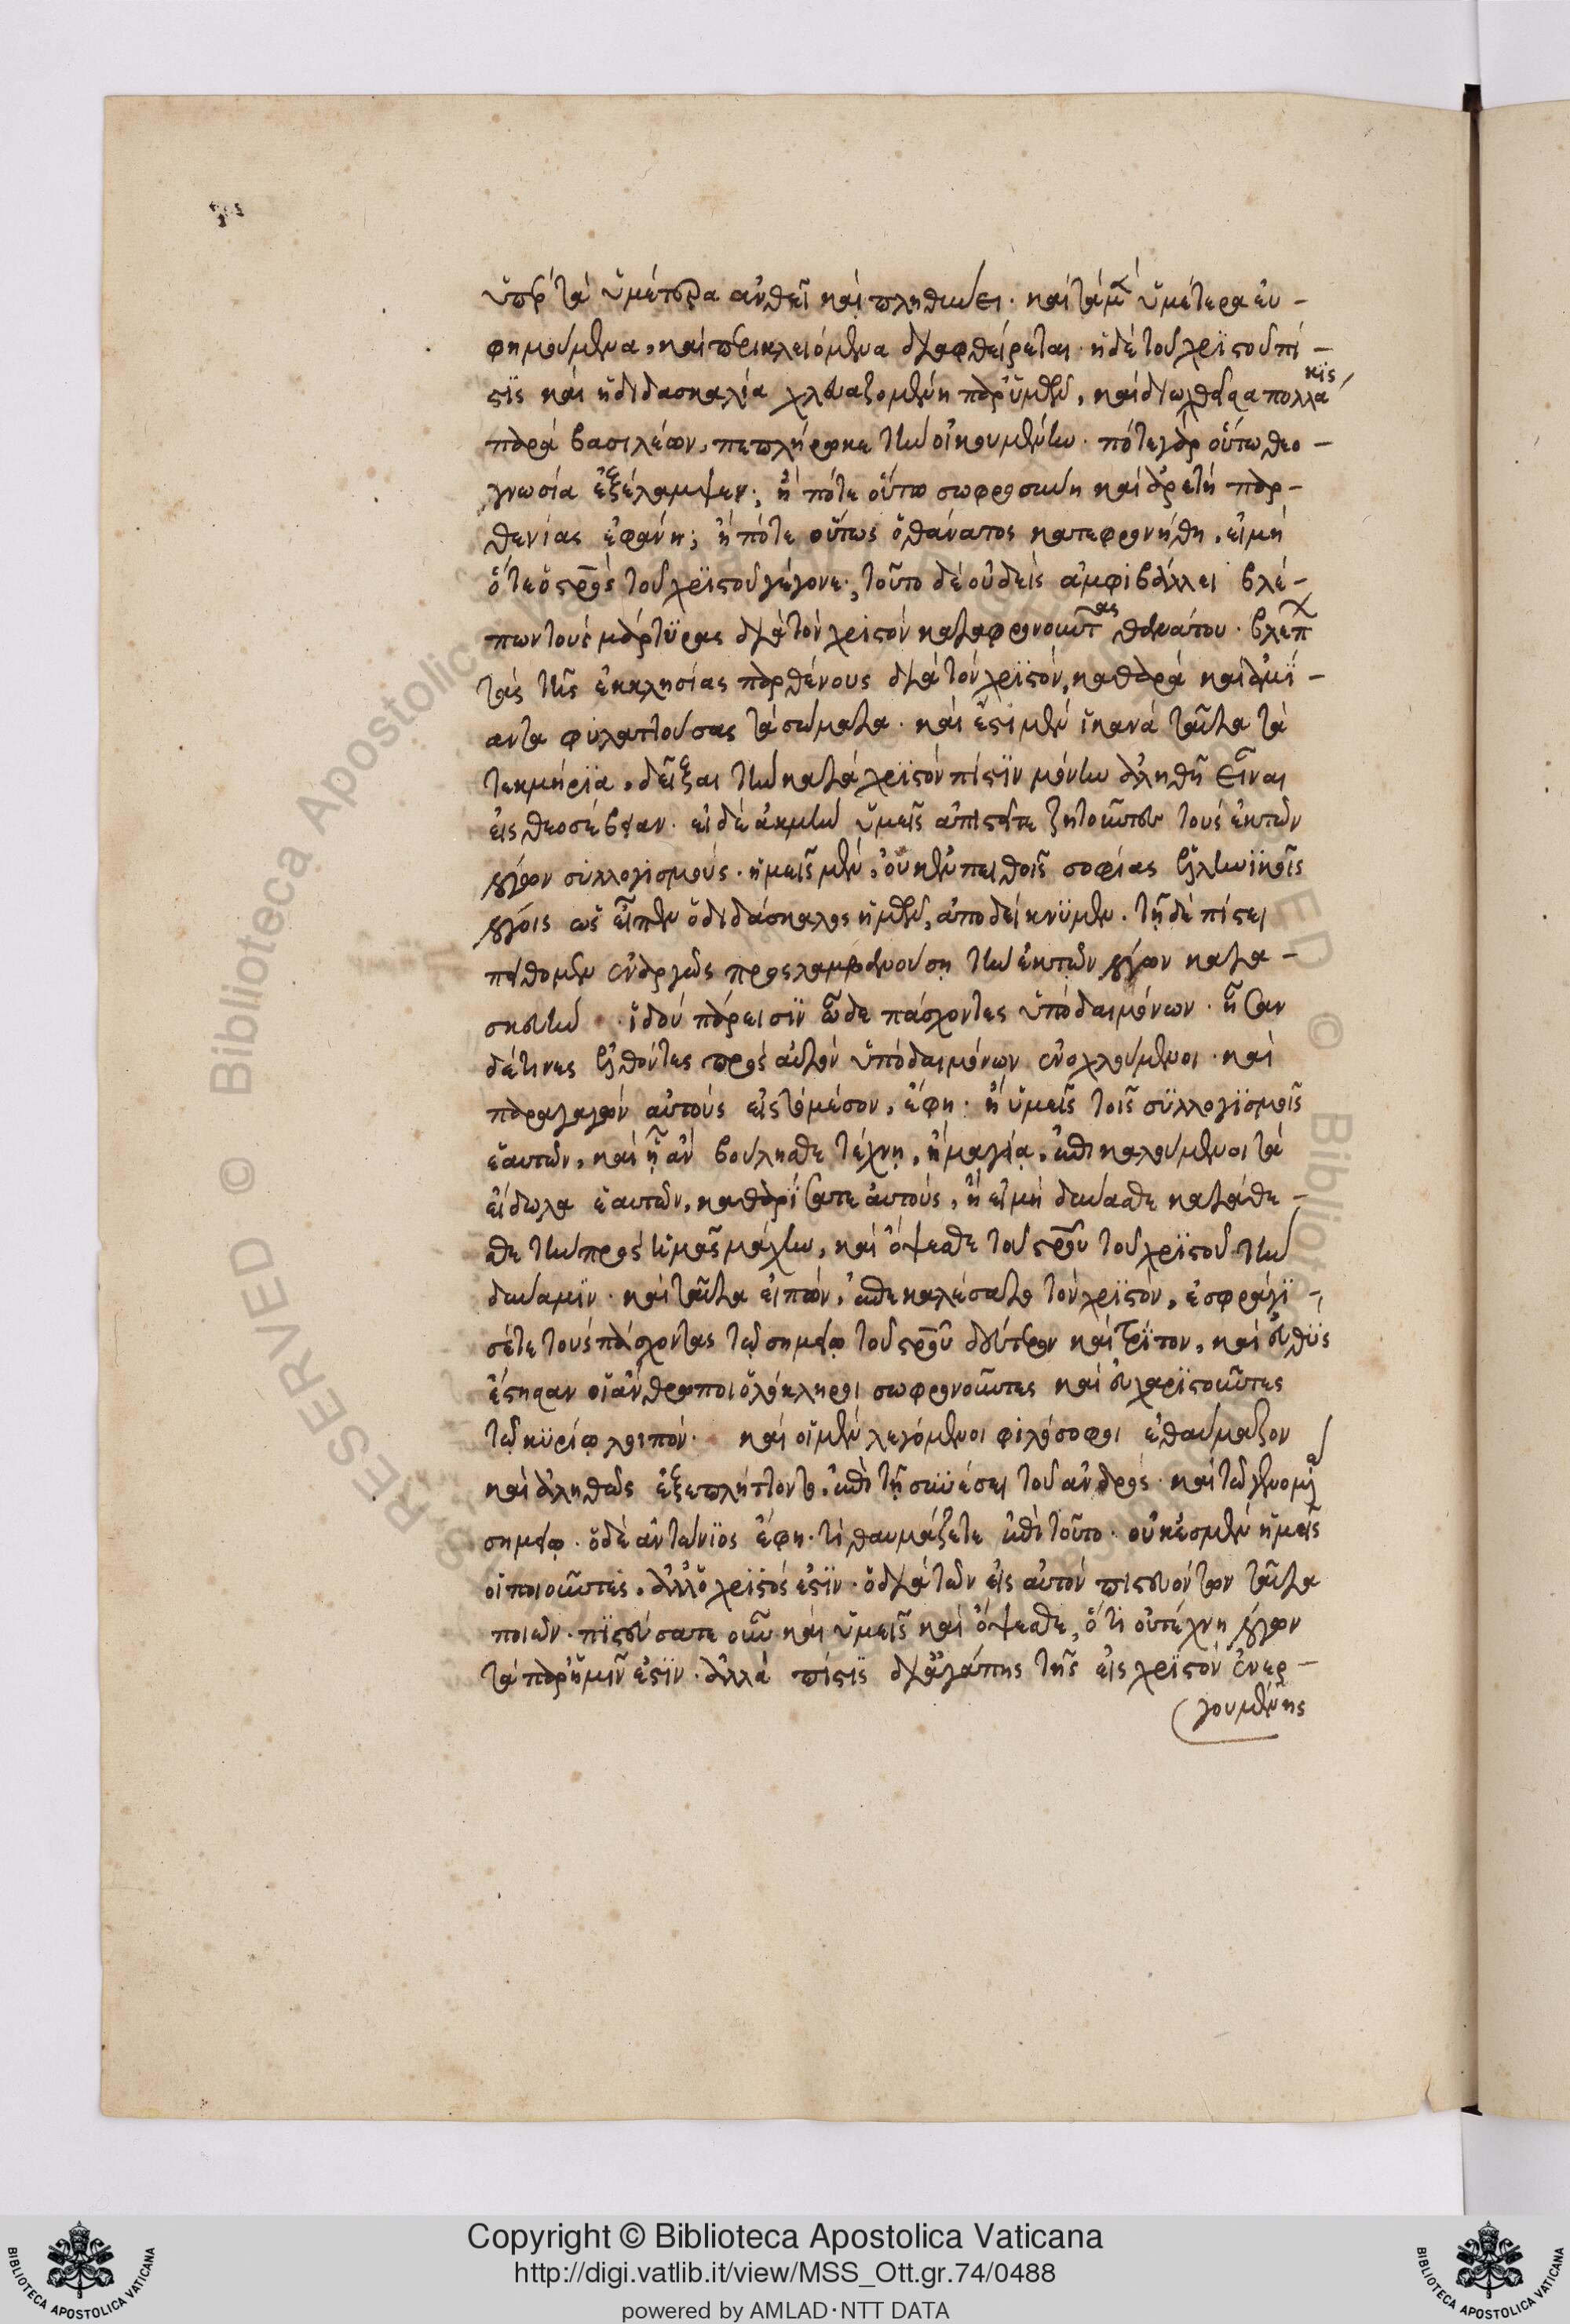 ὑπὲρ τὰ ὑμέτερα ἀνθεῖ καὶ πληθύνει· καὶ τὰ μὲν ὑμέτερα εὐ-
φημούμενα, καὶ περικλειόμενα διαφθείρεται· ἡ δὲ τοῦ χριστοῦ πί-
στις καὶ ἡ διδασκαλία χλευαζομένη παρ' ὑμῶν, καὶ διωχθεῖσα πολλάκις
παρὰ βασιλέων, πεπλήρωκε τὴν οἰκουμένην· πότε γὰρ οὕτω θεο-
γνωσία ἐξέλαμψεν; ἢ πότε οὕτω σωφροσύνη καὶ ἀρετὴ παρ-
θενίας ἐφάνη; ἢ πότε οὕτως ὁ θάνατος κατεφρονήθη, εἰ μὴ
ὅτε ὁ σταυρὸς τοῦ χριστοῦ γέγονε; τοῦτο δὲ οὐδεὶς ἀμφιβάλλει βλέ-
πων τοὺς μάρτυρας διὰ τὸν χριστὸν καταφρονοῦντας θανάτου· βλέπων
τὰς τῆς ἐκκλησίας παρθένους διὰ τὸν χριστόν, καθαρὰ καὶ ἀμί-
αντα φυλαττούσας τὰ σώματα· καὶ ἔστι μὲν ἱκανὰ ταῦτα τὰ
τεκμήρια, δεῖξαι τὴν κατὰ χριστὸν πίστιν μόνην ἀληθῆ εἶναι
εἰς θεοσέβειαν· εἰ δὲ ἀκμὴν ὑμεῖς ἀπιστεῖτε ζητοῦντες τοὺς ἐκ τῶν
λόγων συλλογισμούς· ἡμεῖς μὲν, οὐκ ἐν πειθοῖς σοφίας ἑλληνικοῖς
λόγοις ὡς εἶπεν ὁ διδάσκαλος ἡμῶν, ἀποδείκνυμεν· τῇ δὲ πίστει
πείθομεν ἐναργῶς προσλαμβανούσῃ τὴν ἐκ τῶν λόγων κατα-
σκευήν· ἰδοὺ πάρεισιν ὧδε πάσχοντες ὑπὸ δαιμόνων· ἦσαν
δέ τινες ἐλθόντες πρὸς αὐτὸν ὑπὸ δαιμόνων ἐνοχλούμενοι· καὶ
παραγαγὼν αὐτοὺς εἰς τὸ μέσον, ἔφη· ἢ ὑμεῖς τοῖς συλλογισμοῖς
ἑαυτῶν, καὶ ᾗ ἂν βούλησθε τέχνῃ, ἢ μαγείᾳ, ἐπικαλούμενοι τὰ
εἴδωλα ἑαυτῶν, καθαρίσατε αὐτούς, ἢ εἰ μὴ δύνασθε κατάθε-
σθε τὴν πρὸς ἡμᾶς μάχην, καὶ ὄψεσθε τοῦ σταυροῦ τοῦ χριστοῦ τὴν
δύναμιν· καὶ ταῦτα εἰπών, ἐπεκαλέσατο τὸν χριστόν, ἐσφράγι-
σέ τε τοὺς πάσχοντας τῷ σημείῳ τοῦ σταυροῦ δεύτερον καὶ τρίτον, καὶ εὐθὺς
ἔστησαν οἱ ἄνθρωποι ὁλόκληροι σωφρονοῦντες καὶ εὐχαριστοῦντες
τῷ κυρίῳ λοιπόν· καὶ οἱ μὲν λεγόμενοι φιλόσοφοι ἐθαύμαζον
καὶ ἀληθῶς ἐξεπλήττοντο, ἐπὶ τῇ συνέσει τοῦ ἀνδρός· καὶ τῷ γενομένῳ
σημείῳ· ὁ δὲ ἀντώνιος ἔφη· τί θαυμάζετε ἐπὶ τοῦτο· οὐκ ἐσμὲν ἡμεῖς
οἱ ποιοῦντες, ἀλλ' ὁ χριστός ἐστιν· ὁ διὰ τῶν εἰς αὐτὸν πιστευόντων ταῦτα
ποιῶν· πιστεύσατε οὖν καὶ ὑμεῖς καὶ ὄψεσθε, ὅτι οὐ τέχνη λόγων
τὰ παρ' ἡμῖν ἐστιν· ἀλλὰ πίστις δι' ἀγάπης τῆς εἰς χριστὸν ἐνερ-
γουμένης
RESERVED © Biblioteca Apostolica
Copyright © Biblioteca Apostolica Vaticana
http://digi.vatlib.it/view/MSS_Ott.gr.74/0488
powered by AMLAD·NTT DATA
BIBLIOTECA APOSTOLICA VATICANA
BIBLIOTECA APOSTOLICA VATICANA